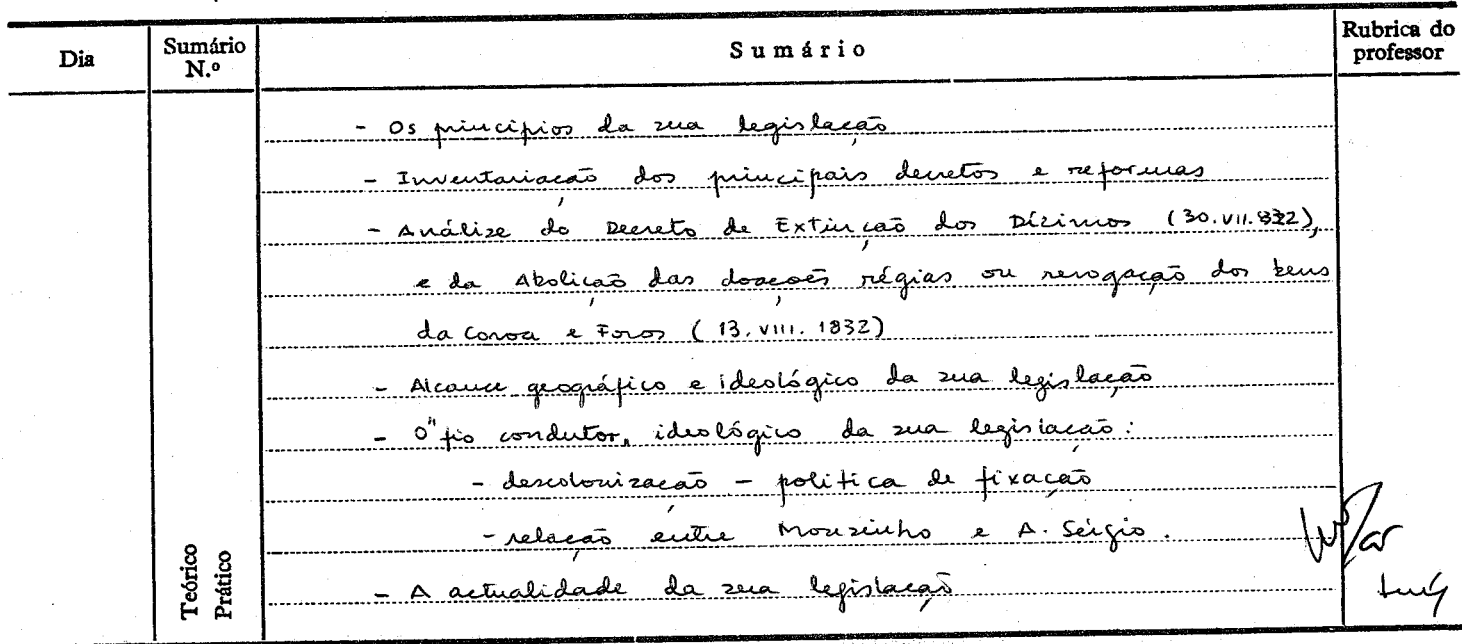 Dia
Sumário N.º
Sumário
Rubrica do professor
- Os princípios da sua legislação
- Inventariação dos principais decretos e reformas
- Análize do Decreto de Extinção dos Dízimos (30.VII.832),
e da Abolição das doações régias ou revogação dos bens
da Coroa e Foros (13.VIII.1832)
- Alcance geográfico e ideológico da sua legislação
- O "fio condutor" ideológico da sua legislação:
- descolonização - politica de fixação
- relação entre Mouzinho e A. Sérgio.
- A actualidade da sua legislação
Teórico
Prático